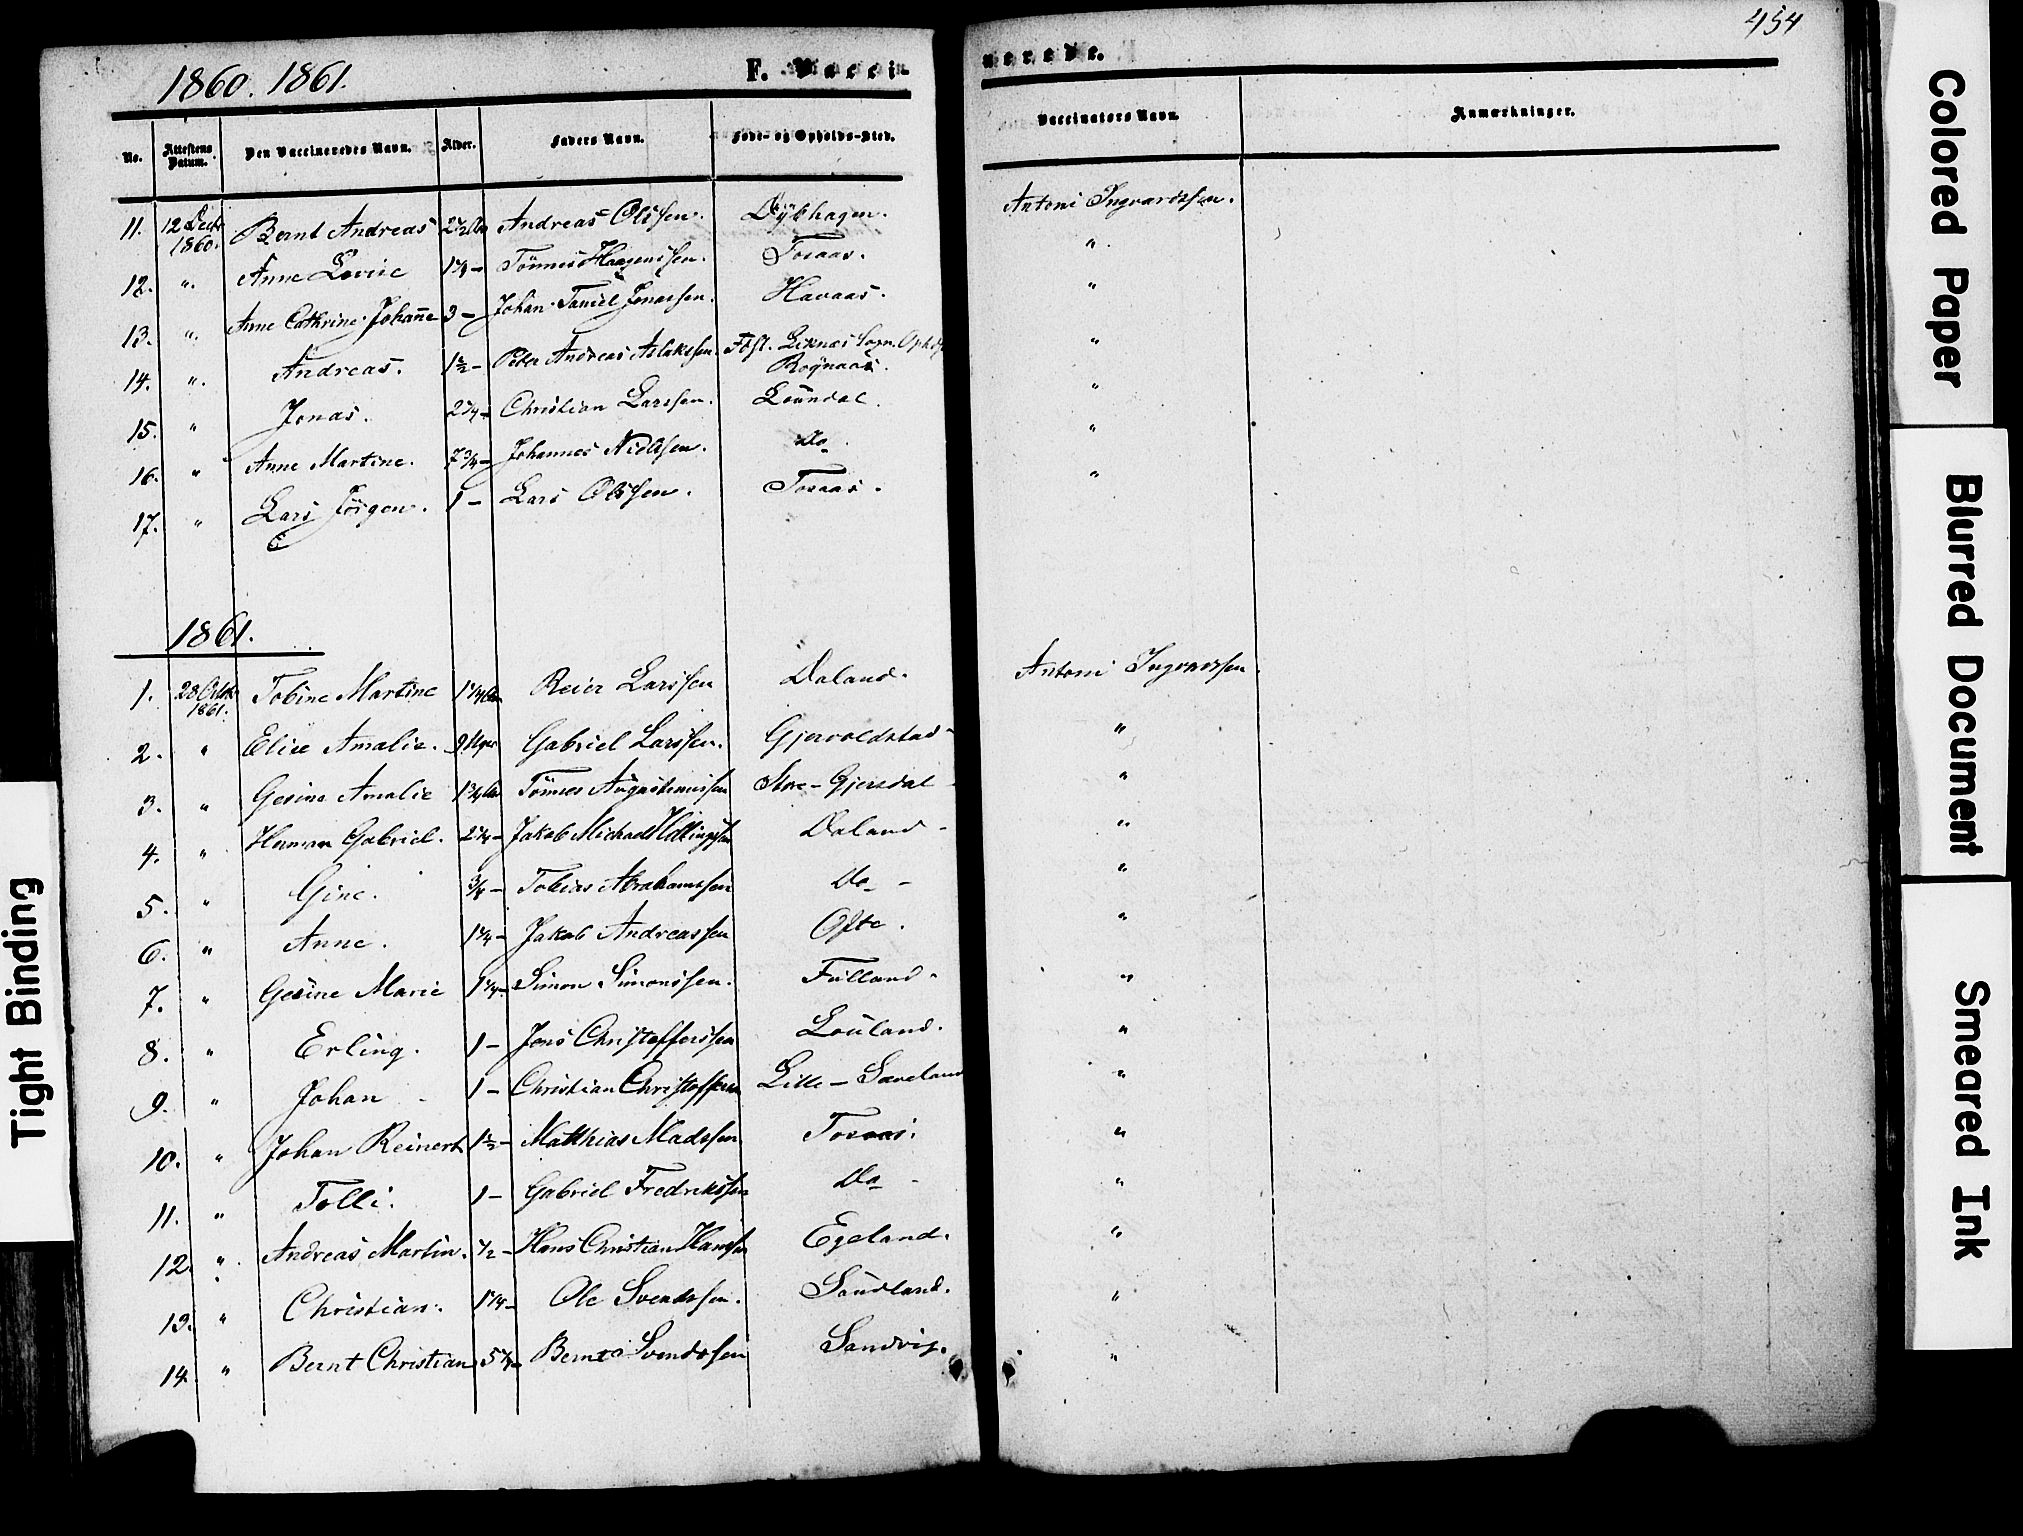 454
1860. 1861.
F. Vaccinerede.
No. Attestens Datum. Den Vaccineredes Navn. Alder. Faders Navn. Føde- og Opholds-Sted. Vaccinators Navn. Anmærkninger.
11. 12 Decbr 1860. Bernt Andreas 2 1/2 Aar Andreas Olssen. Dybhagen. Antoni Ingvardssen.
12. " Anne Lovise 1 1/4 - Tønnes Haagenssen. Tosaas. "
13. " Anne Cathrine Johanne 3 - Johan Daniel Jonassen. Havaas. "
14. " Andreas. 1 1/2 - Peter Andreas Aslakssen. Fdst. Liknæs Sogn. Opholdst Røynaas. "
15. " Jonas. 2 1/4 - Christian Larssen. Loundal. "
16. " Anne Martine. 7 3/4 - Johannes Nielssen. Do "
17. " Lars Jörgen. 1 - Lars Olssen. Tosaas. "
1861.
1. 28 Octbr 1861. Tobine Martine 1 1/4 Aar Reier Larssen Daland. Antoni Ingvardssen
2. " Elise Amalie. 9 Uger Gabriel Larssen. Gjervoldstad "
3. " Gesine Amalie 1 3/4 Aar Tönnes Augustinussen Store-Gjersdal "
4. " Herman Gabriel. 2 1/4 - Jakob Michael Daland "
5. " Gine. 3/4 - Tobias Abrahamssen Do "
6. " Anne. 1 1/4 - Jakob Andreassen Ofte. "
7. " Gesine Marie 1 1/4 - Simon Simonssen. Fülland "
8. " Erling. 1 - Jens Christofferssen Louland. "
9. " Johan 1 - Christian Christoffersen Lille-Sæveland "
10. " Johan Reinert 1 1/2 - Matthias Madssen Tosaas. "
11. " Tolli. 1 - Gabriel Fredrikssen Do "
12. " Andreas Martin. 1/2 - Hans Christian Hanssen Egeland. "
13. " Christian. 1 1/4 - Ole Svendssen. Söudland. "
14. " Bernt Christian 5 1/4 - Bernt Svendssen Sandvig. "
Tight Binding
Colored Paper
Blurred Document
Smeared Ink